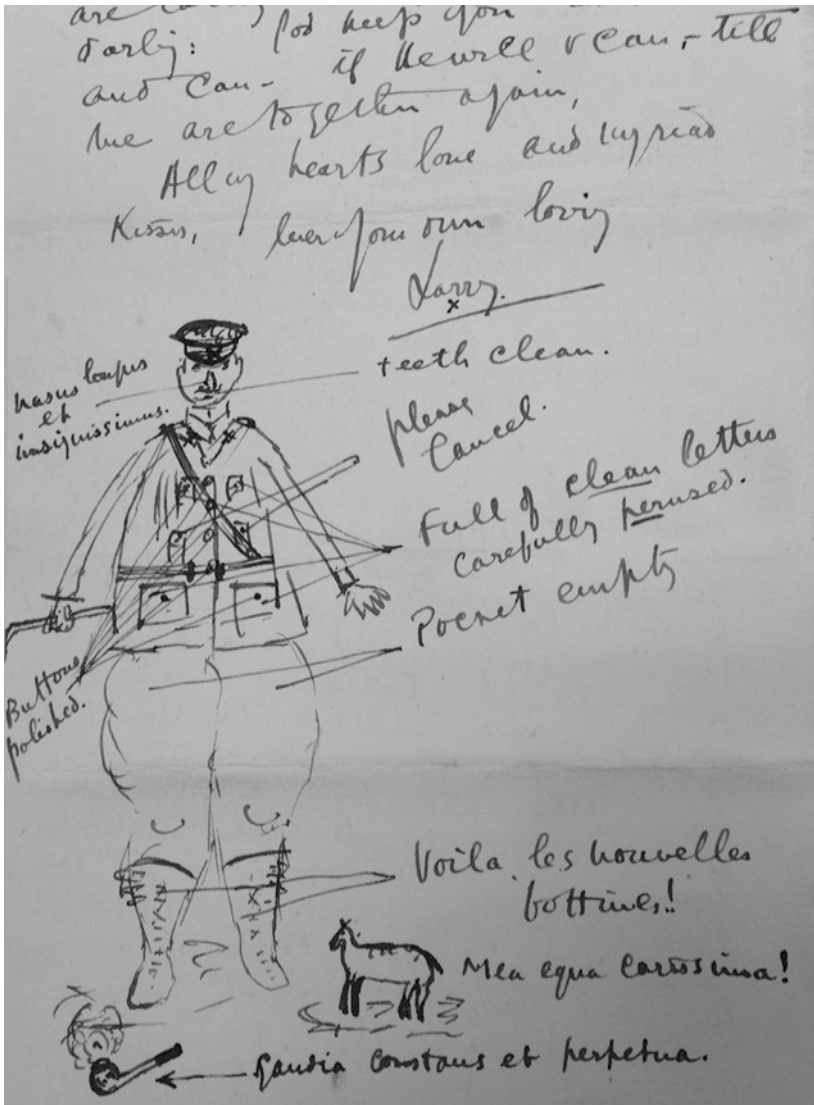 are
darling: God keep you
and can - if He will & can, - till
we are together again,
All my hearts love and myriad
Kisses, ever your own loving
Larry.
x
nasus longus
et
insignissimus.
teeth clean.
please
Cancel.
Full of clean letters
carefully perused.
Pocket empty
Buttons
polished.
Voila les nouvelles
bottines!!
Mea equa carissima!
Gaudia constans et perpetua.